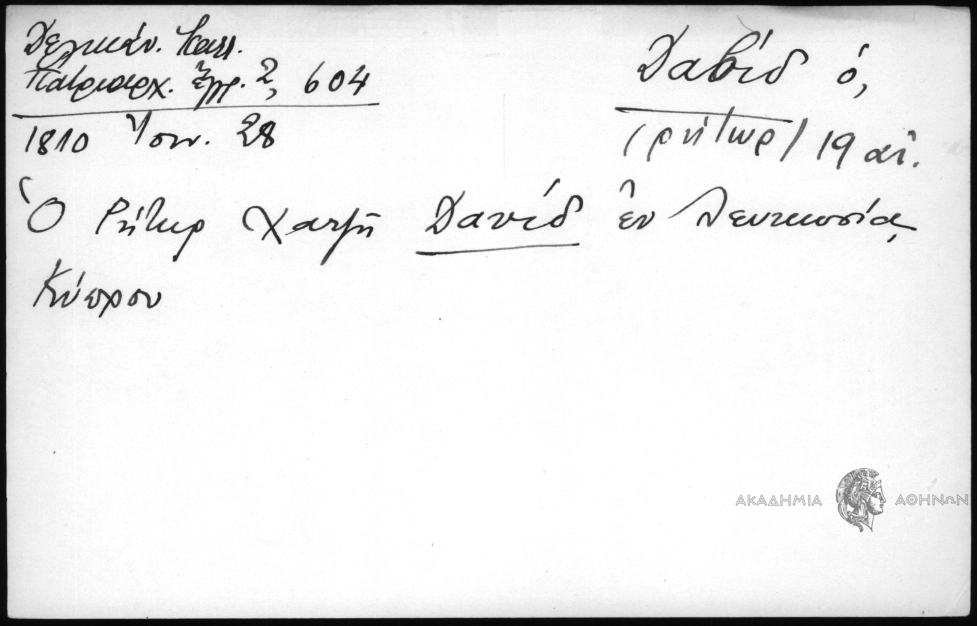 Δελικάν. Καλλ.
Πατριαρχ. Ἔγγρ. 2, 604
1810 Ἰουν. 28
Δαβίδ ὁ,
(ρήτωρ) 19 αἰ.
Ὁ Ρήτωρ Χατζῆ Δαυίδ ἐν Λευκωσίᾳ
Κύπρου
ΑΚΑΔΗΜΙΑ ΑΘΗΝΩΝ